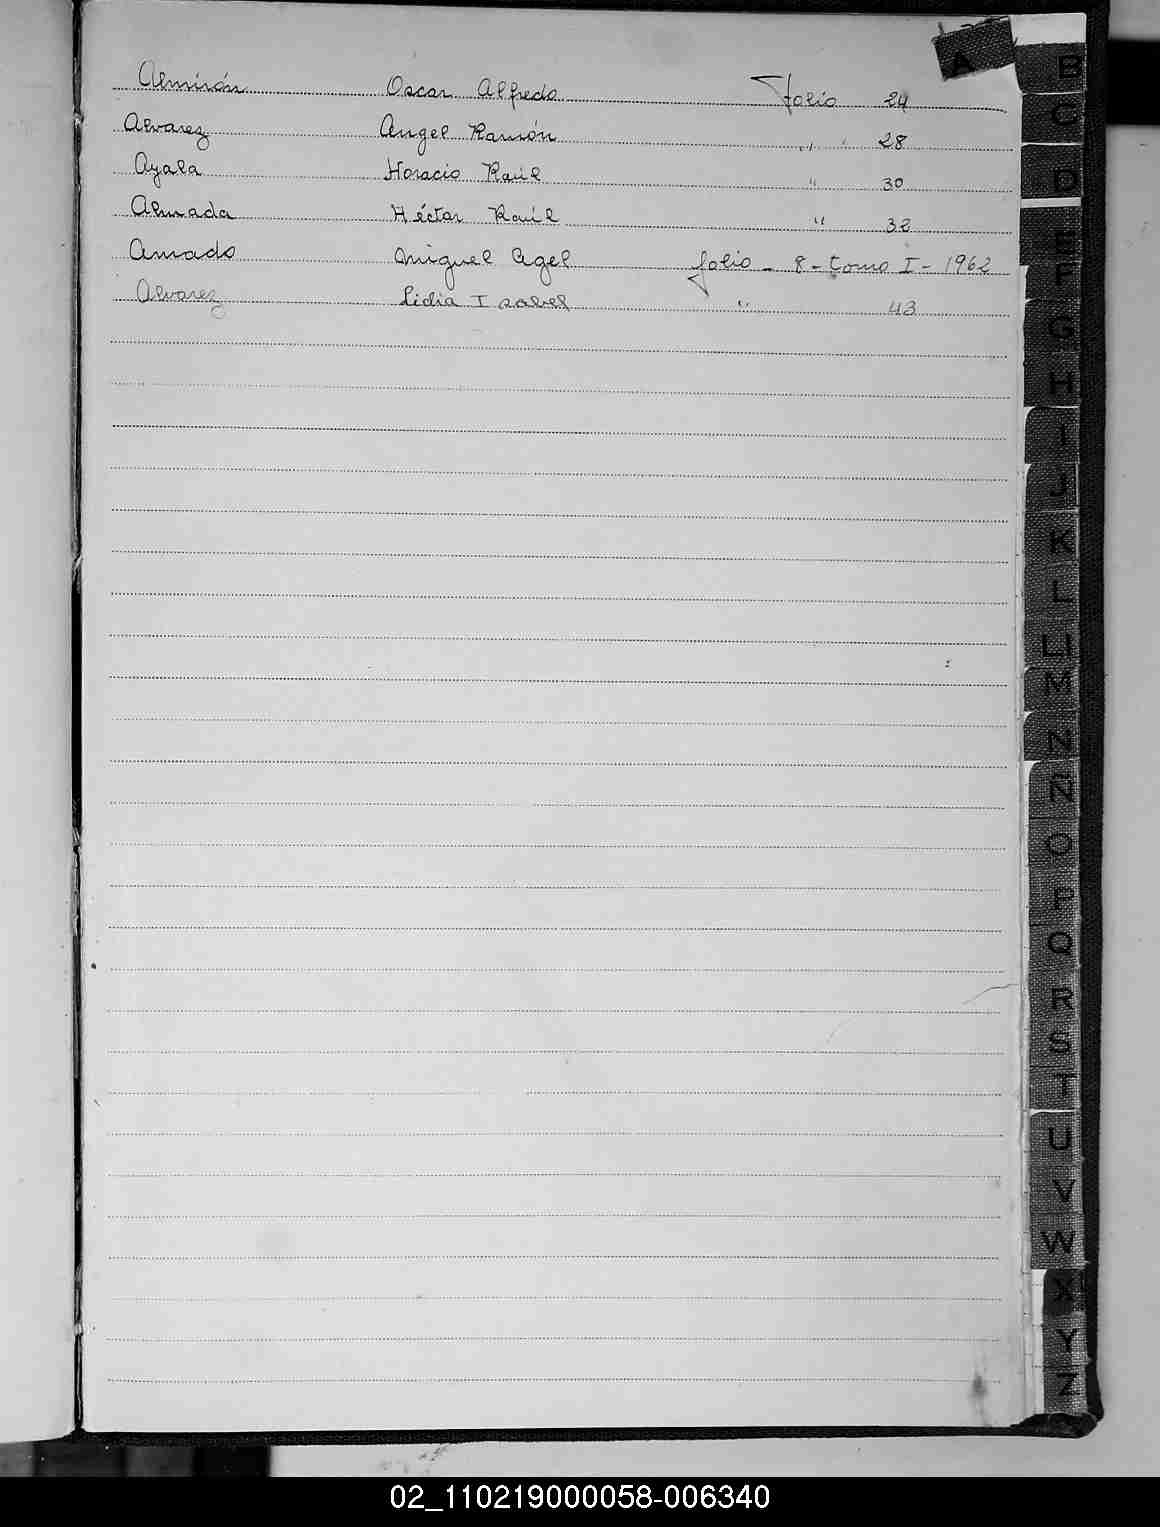 Almirón Oscar Alfredo folio 24
Alvarez Angel Ramón " 28
Ayala Horacio Raúl " 30
Almada Héctar Raúl " 32
Amado Miguel Agel folio - 8 - tomo I - 1962
Alvarez Lidia Isabel " 43
A
B
C
D
E
F
G
H
I
J
K
L
LL
M
N
Ñ
O
P
Q
R
S
T
U
V
W
X
Y
Z
02_110219000058-006340